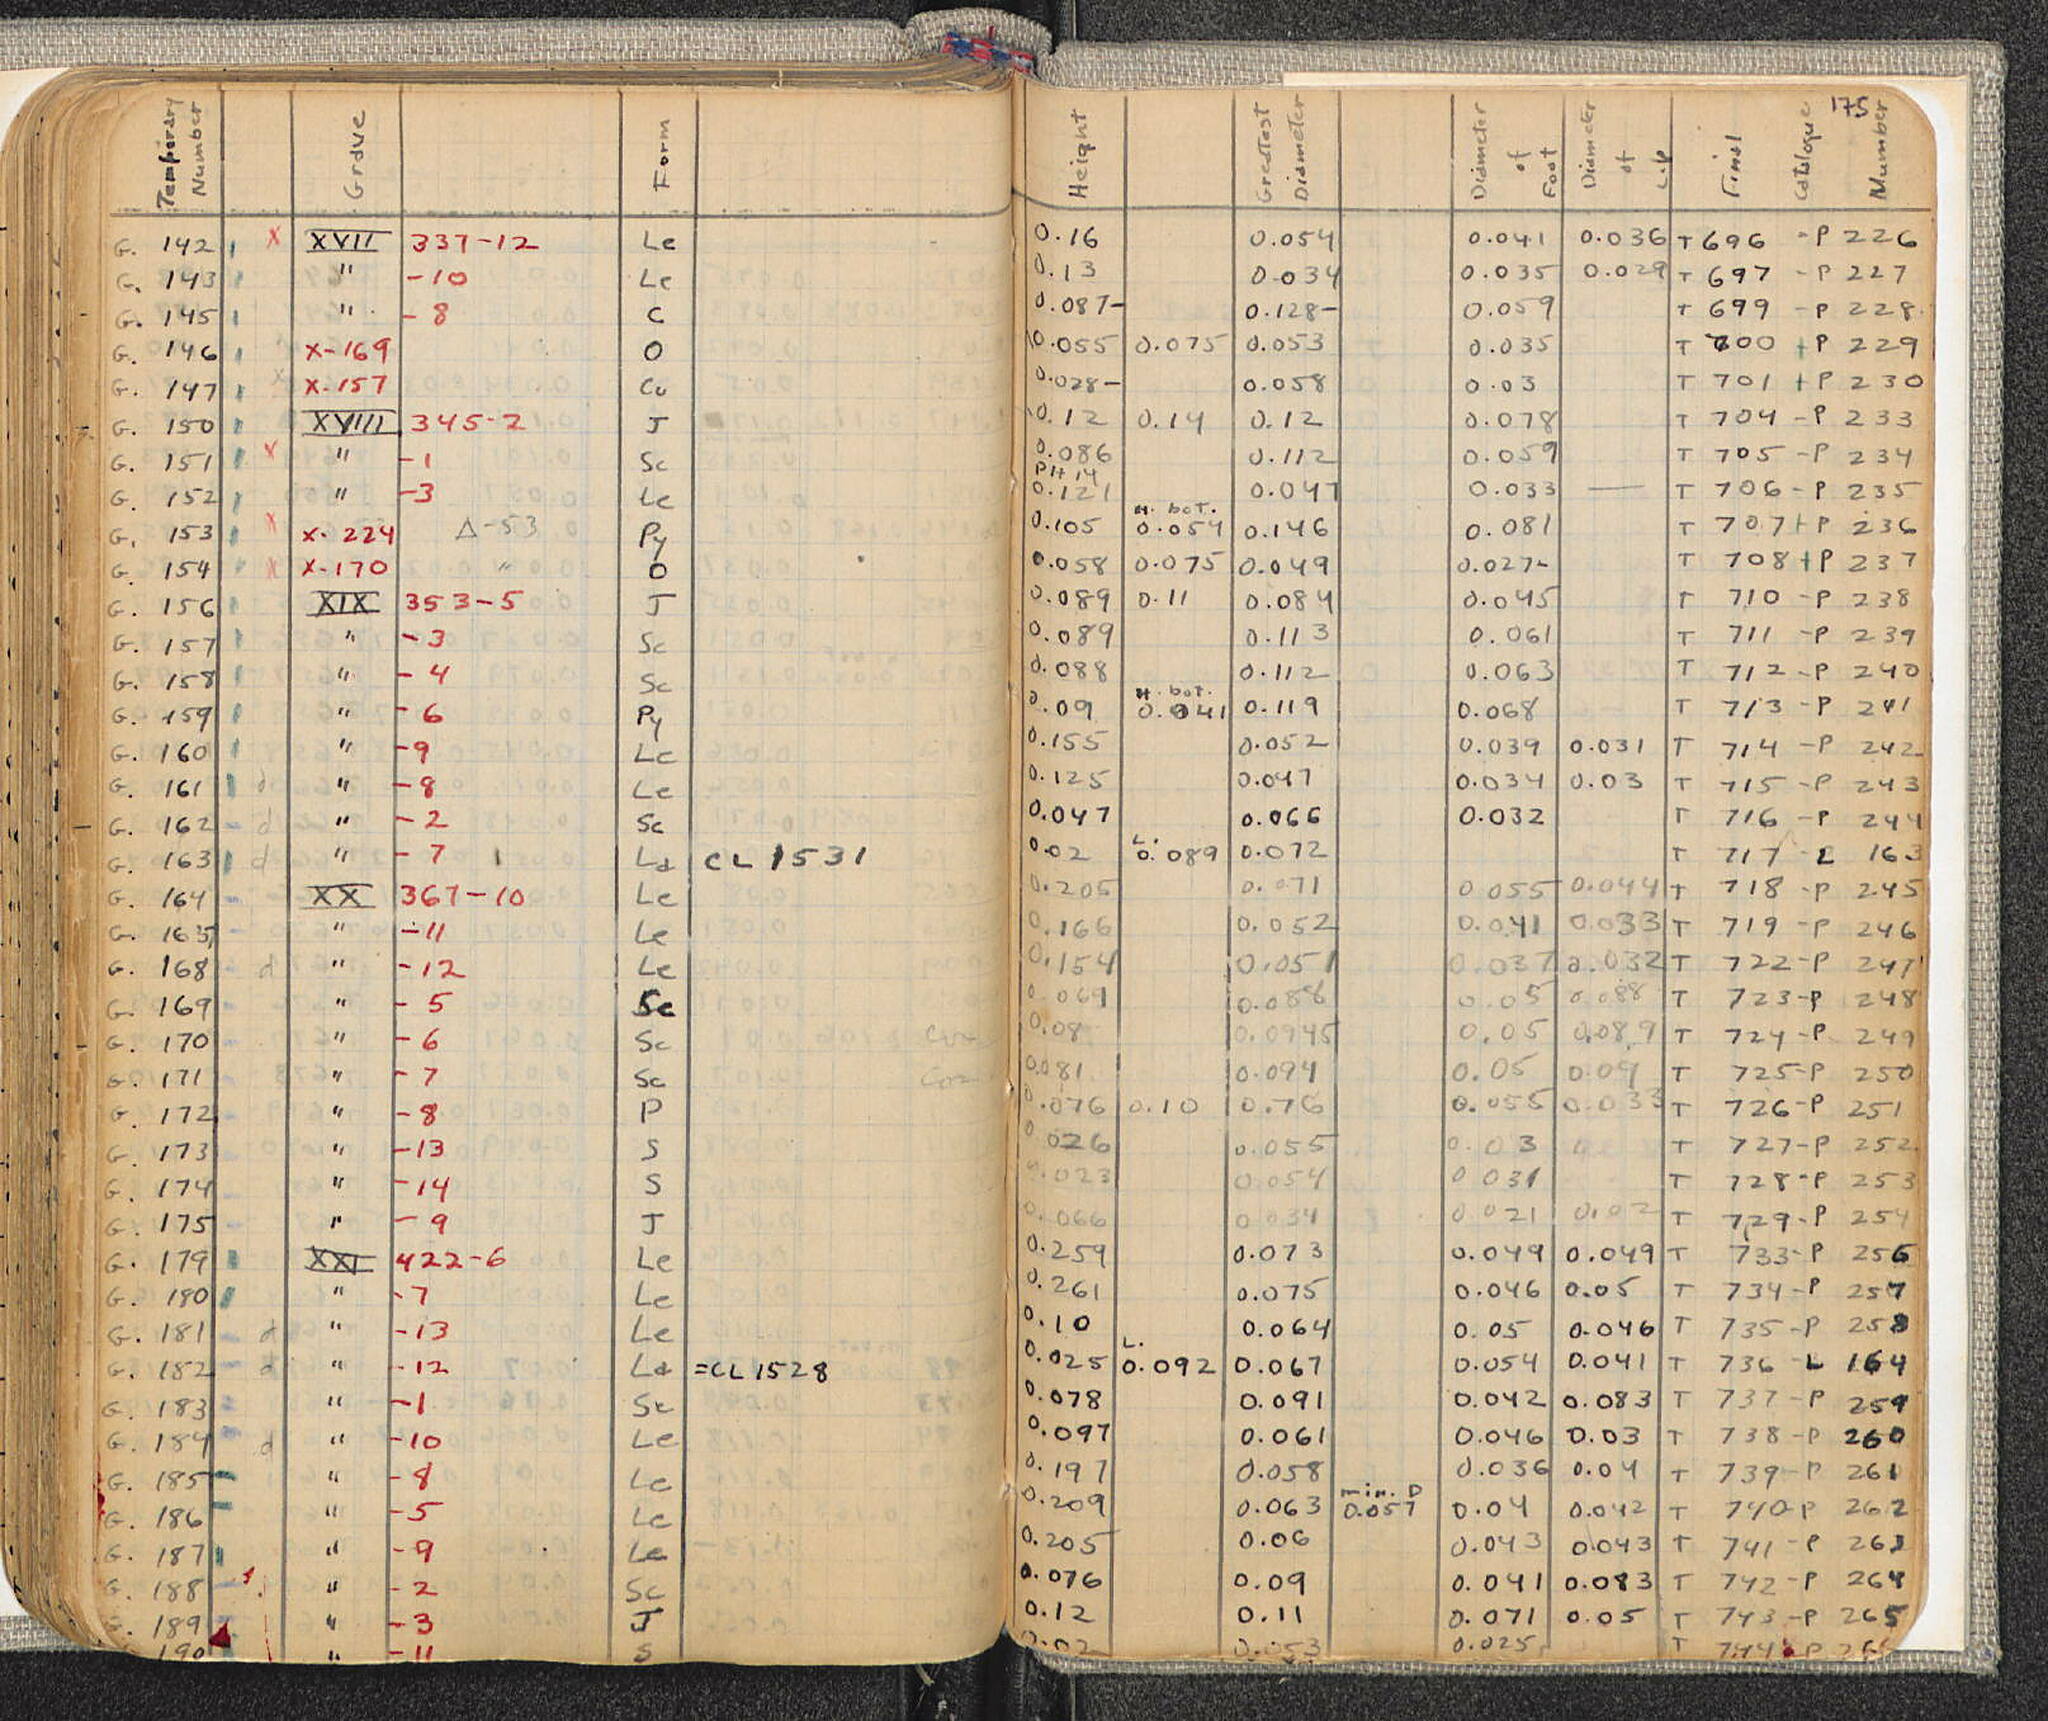 175
Temporary Number Grave Form Height Greatest Diameter Diameter of Foot Diameter of Lip Final Catalogue Number
G. 142 x XVII 337-12 Le 0.16 0.054 0.041 0.036 T 696 -P 226
G. 143 " -10 Le 0.13 0.034 0.035 0.029 T 697 -P 227
G. 145 " -8 C 0.087- 0.128- 0.059 T 699 -P 228
G. 146 X-169 O 0.055 0.075 0.053 0.035 T 700 +P 229
G. 147 x X-157 Cu 0.028- 0.058 0.03 T 701 +P 230
G. 150 XVIII 345-2 J 0.12 0.14 0.12 0.078 T 704 -P 233
G. 151 x " -1 Sc 0.086 0.112 0.059 T 705 -P 234
G. 152 " -3 Le PH 14 0.121 0.047 0.033 — T 706 -P 235
G. 153 x X-224 Δ-53 Py 0.105 H. bot. 0.054 0.146 0.081 T 707 +P 236
G. 154 x X-170 " O 0.058 0.075 0.049 0.027- T 708 +P 237
G. 156 XIX 353-5 J 0.089 0.11 0.084 0.045 T 710 -P 238
G. 157 " -3 Sc 0.089 0.113 0.061 T 711 -P 239
G. 158 " -4 Sc 0.088 0.112 0.063 T 712 -P 240
G. 159 " -6 Py 0.09 H. bot. 0.041 0.119 0.068 T 713 -P 241
G. 160 " -9 Le 0.155 0.052 0.039 0.031 T 714 -P 242
G. 161 d " -8 Le 0.125 0.047 0.034 0.03 T 715 -P 243
G. 162 - d " -2 Sc 0.047 0.066 0.032 T 716 -P 244
G. 163 d " -7 La CL 1531 0.02 L. 0.089 0.072 T 717 -L 163
G. 164 - XX 367-10 Le 0.205 0.071 0.055 0.044 T 718 -P 245
G. 165 - " -11 Le 0.166 0.052 0.041 0.033 T 719 -P 246
G. 168 - d " -12 Le 0.154 0.051 0.037 0.032 T 722 -P 247
G. 169 - " -5 Sc 0.064 0.088 0.05 0.088 T 723 -P 248
G. 170 - " -6 Sc 0.08 0.0945 0.05 0.089 T 724 -P 249
G. 171 - " -7 Sc 0.081 0.094 0.05 0.09 T 725 -P 250
G. 172 - " -8 P 0.076 0.10 0.76 0.055 0.033 T 726 -P 251
G. 173 - " -13 S 0.026 0.055 0.03 T 727 -P 252
G. 174 - " -14 S 0.023 0.054 0.031 T 728 -P 253
G. 175 - " -9 J 0.066 0.034 0.021 0.02 T 729 -P 254
G. 179 XXI 422-6 Le 0.259 0.073 0.049 0.049 T 733 -P 256
G. 180 " -7 Le 0.261 0.075 0.046 0.05 T 734 -P 257
G. 181 - d " -13 Le 0.10 0.064 0.05 0.046 T 735 -P 258
G. 182 - d " -12 La =CL 1528 0.025 L. 0.092 0.067 0.054 0.041 T 736 -L 164
G. 183 - " -1 Sc 0.078 0.091 0.042 0.083 T 737 -P 259
G. 184 - d " -10 Le 0.097 0.061 0.046 0.03 T 738 -P 260
G. 185 - " -8 Le 0.197 0.058 0.036 0.04 T 739 -P 261
G. 186 - " -5 Le 0.209 0.063 min. D 0.057 0.04 0.042 T 740 -P 262
G. 187 " -9 Le 0.205 0.06 0.043 0.043 T 741 -P 263
G. 188 - " -2 Sc 0.076 0.09 0.041 0.083 T 742 -P 264
G. 189 - " -3 J 0.12 0.11 0.071 0.05 T 743 -P 265
190 " -11 S 0.02 0.053 0.025 T 744 -P